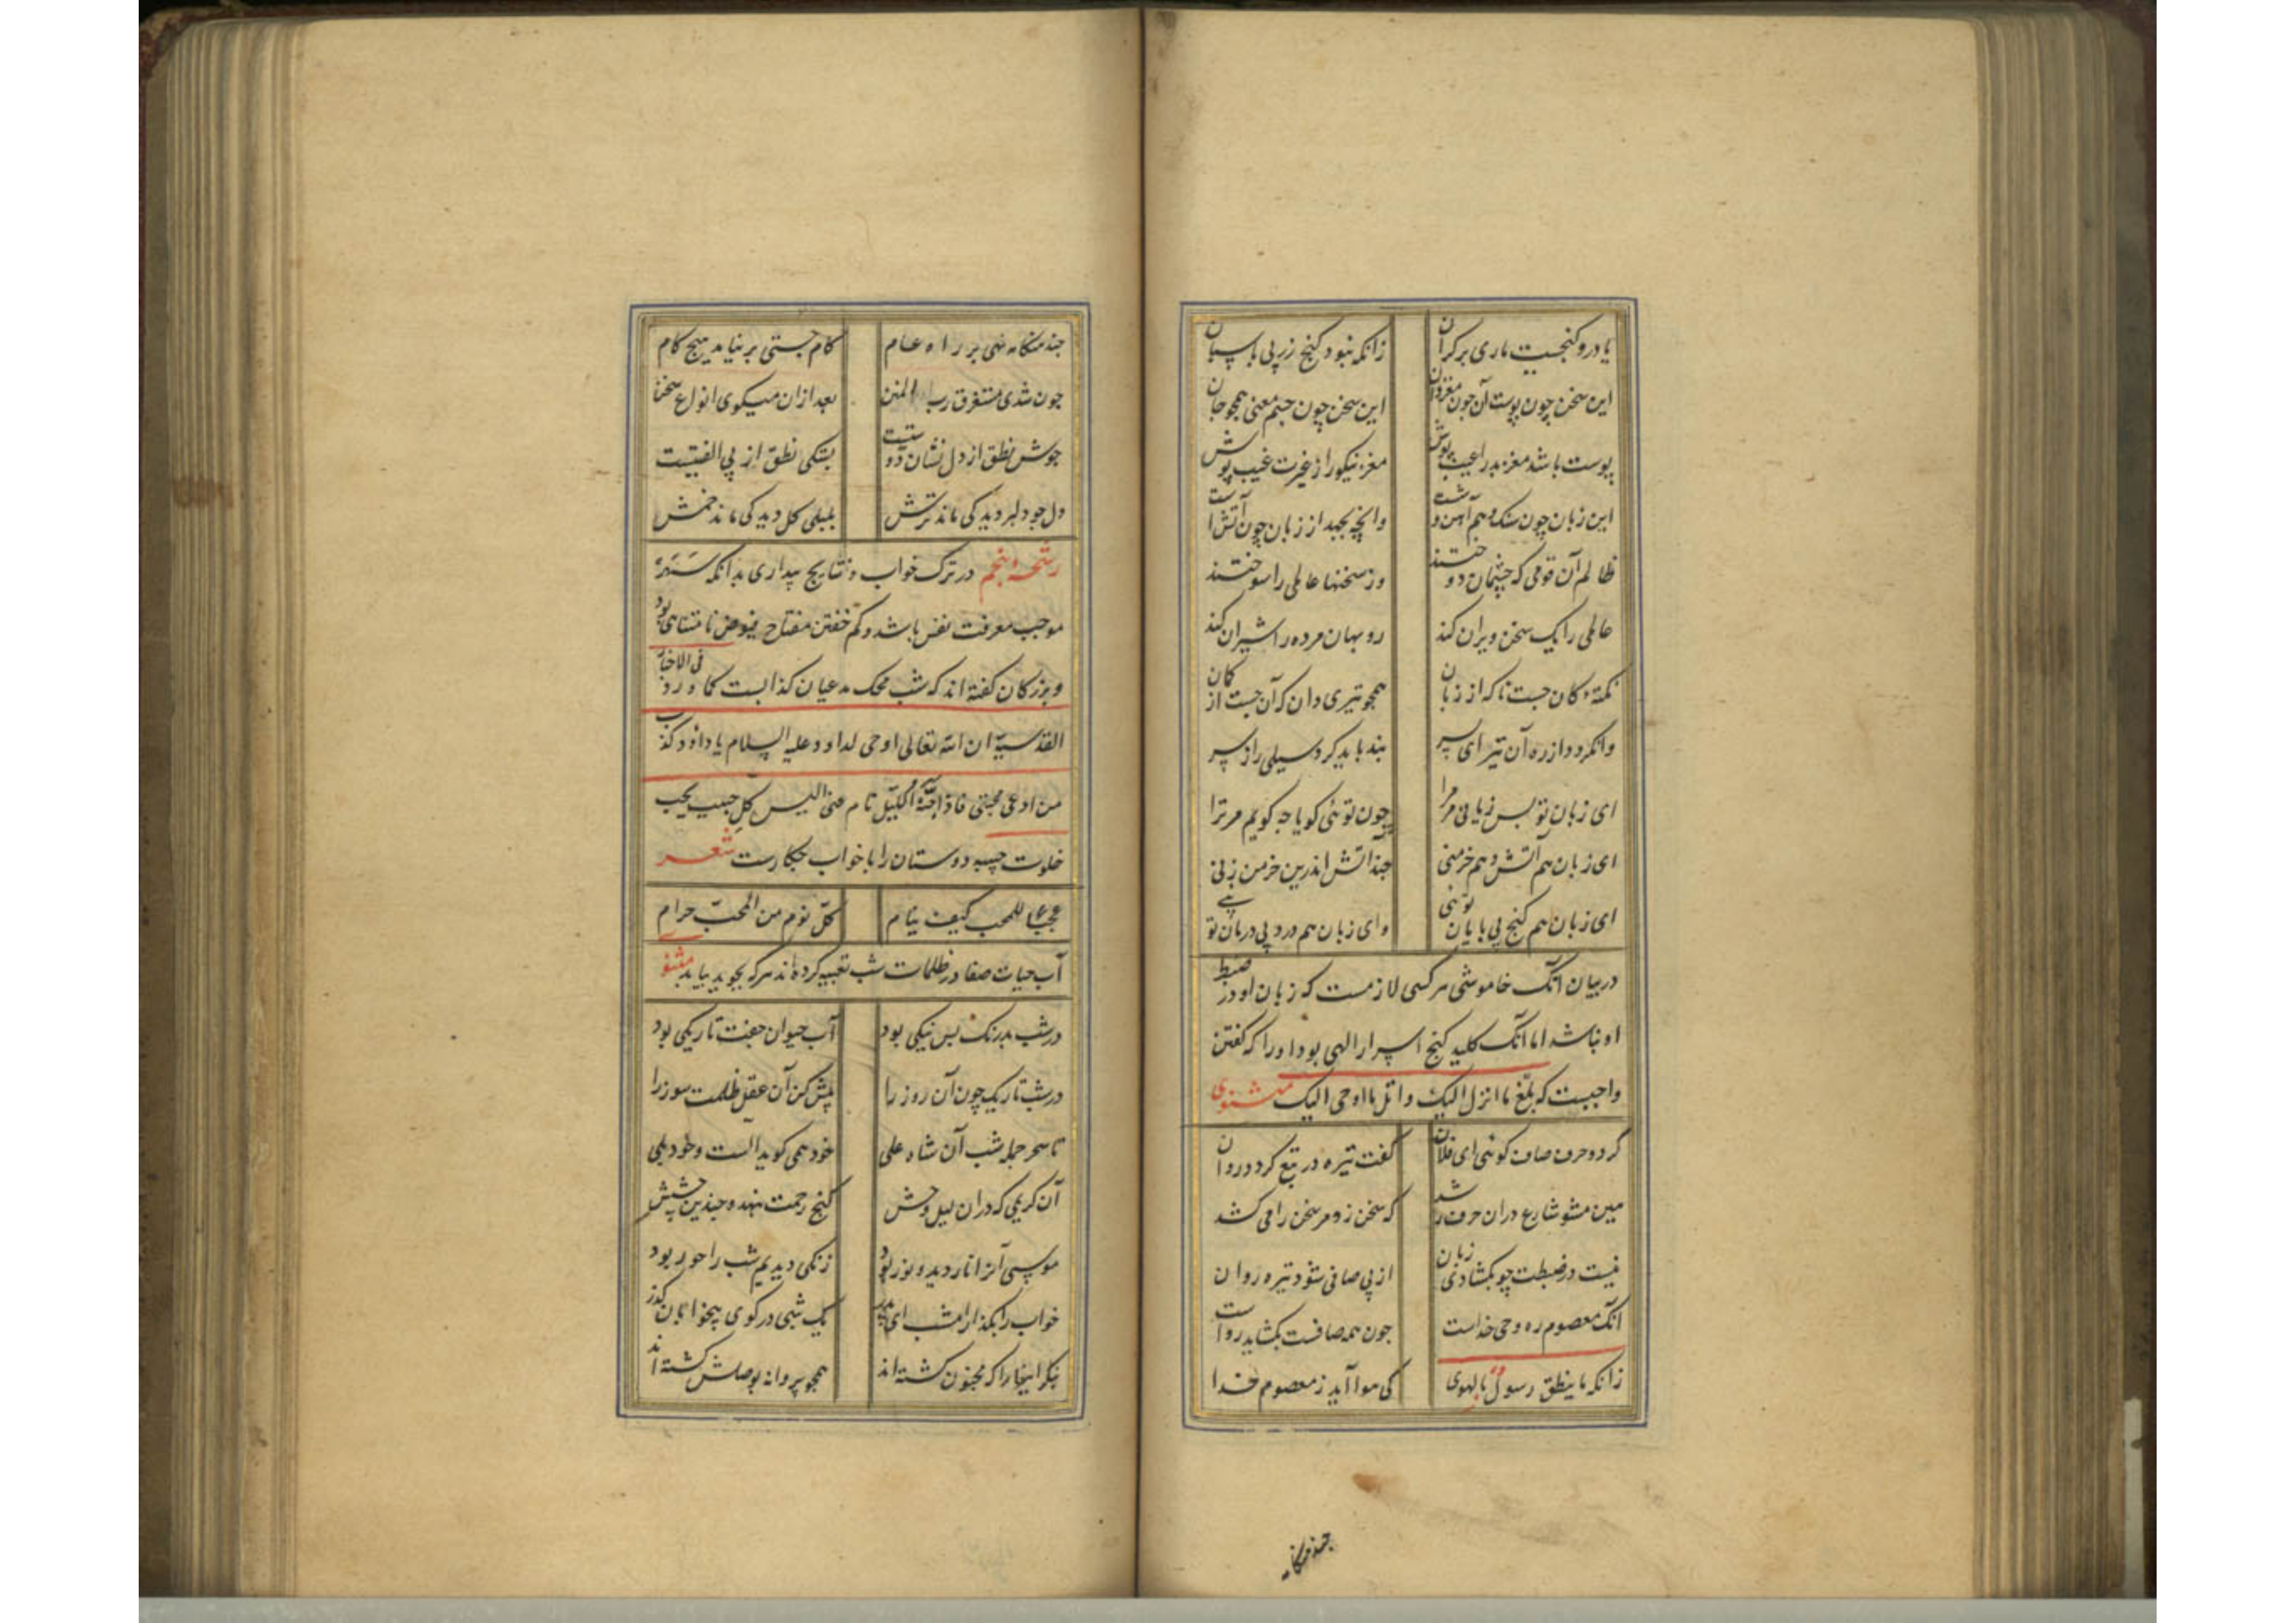 یا درو کنجیست ماری بر کران زانکه نبود کنج زر بی پاسبان
این سخن چون پوست آن چون مغز دان این سخن چون جسم معنی همچو جان
پوست باشد مغز بد را عیب پوش مغز نیکو را ز غیرت غیب پوش
این زبان چون سنک و هم آهن وشست وانچه بجهد از زبان چون آتش است
ظالم آن قومی که چشمان دوختند وز سخنها عالمی را سوختند
عالمی را یک سخن ویران کند روبهان مرده را شیران کند
نکته کان جست ناکه از زبان همچو تیری دان که آن جست از کمان
وانکردد از ره آن تیر ای پسر بند باید کرد سیلی را ز سر
ای زبان تو بس زیانی مر مرا چون توئی کویا چه کویم مر ترا
ای زبان هم آتش و هم خرمنی چند آتش اندرین خرمن زنی
ای زبان هم کنج بی پایان توئی وای زبان هم درد بی درمان توئی
در بیان آنک خاموشی هر کسی لازمست که زبان او در ضبط
او نباشد اما آنک کلید کنج اسرار الهی بود اورا که کفتن
واجبست که بلّغ ما انزل الیک و اتل ما اوحی الیک مثنوی
کرد و حرف صاف کوئی ای فلان کفت تیره در تبع کردد روان
هین مشو شارع دران حرف رشد که سخن زو مر سخن را می کشد
نیست در ضبطت چو بکشادی زبان از پی صافی شود تیره روان
آنک معصوم ره وحی خداست چون همه صافست بکشاید رواست
زانکه ما ینطق رسول بالهوی کی هوا آید ز معصوم خدا
چند هنکامه
چند هنکامه نهی بر راه عام کام جستی بر نیامد هیچ کام
چون شدی مستغرق رب المنن بعد ازان میکوی انواع سخن
جوش نطق از دل نشان دوستیست بستکی نطق از بی الفتیست
دل چو دلبر دید کی ماند ترش بلبلی کل دید کی ماند خمش
رشحه پنجم در ترک خواب و نتایج بیداری بدانکه سهر
موجب معرفت نفس باشد و کم خفتن مفتاح فیوض نامتناهی بود
و بزرکان کفته اند که شب محک مدعیان کذابست کما ورد فی الاخبار
القدسیة ان الله تعالی اوحی لداود علیه السلام یا داود کذب
من ادعی محبتی فاذا جنّه اللیل نام عنی الیس کل حبیب یحب
خلوت حبیبه دوستان را با خواب چکارست شعر
عجبا للمحب کیف ینام کل نوم من المحبّ حرام
آب حیات صفا در ظلمات شب تعبیه کرده اند هر که بجوید بیابد مثنوی
در شب بدرنک بس نیکی بود آب حیوان جفت تاریکی بود
در شب تاریک چون آن روز را پیش کن آن عقل ظلمت سوز را
تا سحر جمله شب آن شاه علی خود همی کوید الست و خود بلی
آن کریمی که دران لیل وحش کنج رحمت بنهد و چندین چشش
موسی آنرا نار دید و نور بود زنکی دیدیم شب را حور بود
خواب را بکذار امشب ای پدر یک شبی در کوی بیخوابان کذر
بنکر اینها را که مجنون کشته اند همچو پروانه بوصلش کشته اند